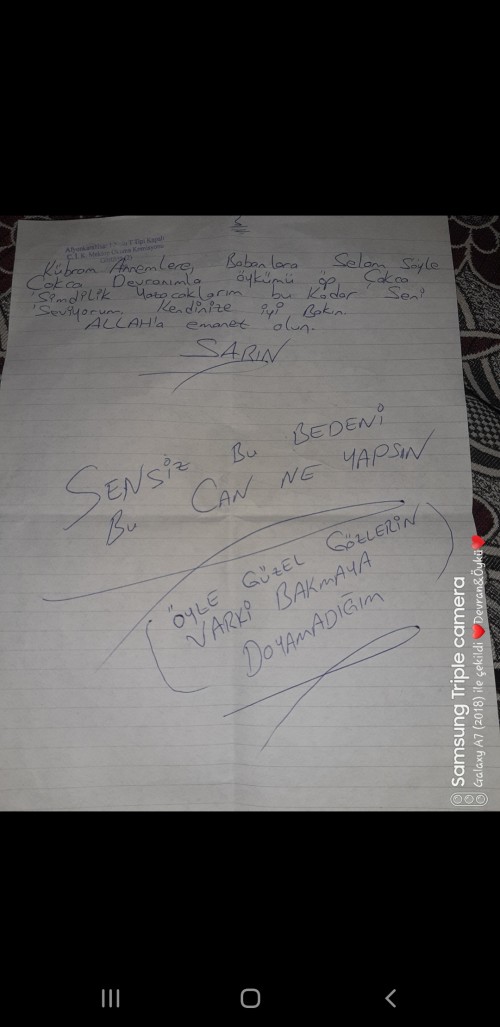 Tipi Kapalı
Okuma Komisyonu
Kübram Annemlere, Babanlara Selam Söyle
Çokca Devranımla öykümü öp Çokca
Şimdilik Yazacaklarım bu Kadar Seni
Seviyorum. Kendinize iyi Bakın.
ALLAH'a emanet olun.
SARIN
SENSİZ BU BEDENİ
BU CAN NE YAPSIN
(ÖYLE GÜZEL GÖZLERİN
VARKİ BAKMAYA
DOYAMADIĞIM)
Samsung Triple camera
Galaxy A7 (2018) ile çekildi ❤️Devran&Öykü❤️